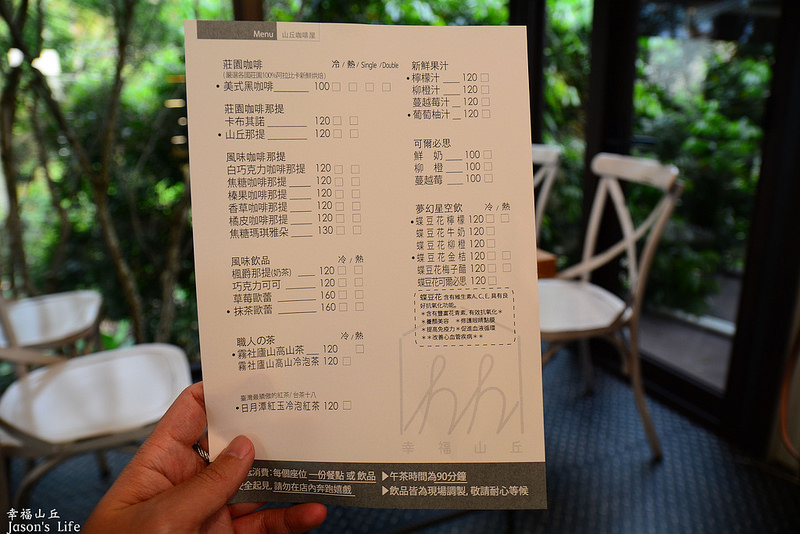 Menu 山丘咖啡屋
莊園咖啡 冷 / 熱 / Single / Double
(嚴選各國莊園100%阿拉比卡新鮮烘焙)
• 美式黑咖啡 100 □ □ □ □
莊園咖啡那提
卡布其諾 120 □ □
• 山丘那提 120 □ □
風味咖啡那提
白巧克力咖啡那提 120 □ □
焦糖咖啡那提 120 □ □
榛果咖啡那提 120 □ □
香草咖啡那提 120 □ □
橘皮咖啡那提 120 □ □
焦糖瑪琪雅朵 130 □ □
風味飲品 冷 / 熱
楓爵那提(奶茶) 120 □ □
巧克力可可 120 □ □
草莓歐蕾 160 □ □
• 抹茶歐蕾 160 □ □
職人の茶 冷 / 熱
• 霧社廬山高山茶 120 □
霧社廬山高山冷泡茶 120 □
臺灣最驕傲的紅茶/台茶十八
• 日月潭紅玉冷泡紅茶 120 □
新鮮果汁
• 檸檬汁 120 □
柳橙汁 120 □
蔓越莓汁 120 □
• 葡萄柚汁 120 □
可爾必思
鮮奶 100 □
柳橙 100 □
蔓越莓 100 □
夢幻星空飲 冷 / 熱
• 蝶豆花檸檬 120 □ □
蝶豆花牛奶 120 □
蝶豆花柳橙 120 □
• 蝶豆花金桔 120 □ □
蝶豆花梅子醋 120 □ □
蝶豆花可爾必思 120 □
蝶豆花 含有維生素A, C, E, 具有良
好抗氧化功能。
＊含有豐富花青素, 有效抗氧化＊
＊養顏美容 ＊修護眼睛黏膜
＊提高免疫力＊促進血液循環
＊＊改善心血管疾病＊＊
幸福山丘
消費：每個座位 一份餐點 或 飲品 ▶午茶時間為90分鐘
全起見, 請勿在店內奔跑嬉戲 ▶飲品皆為現場調製, 敬請耐心等候
幸福山丘
Jason's Life